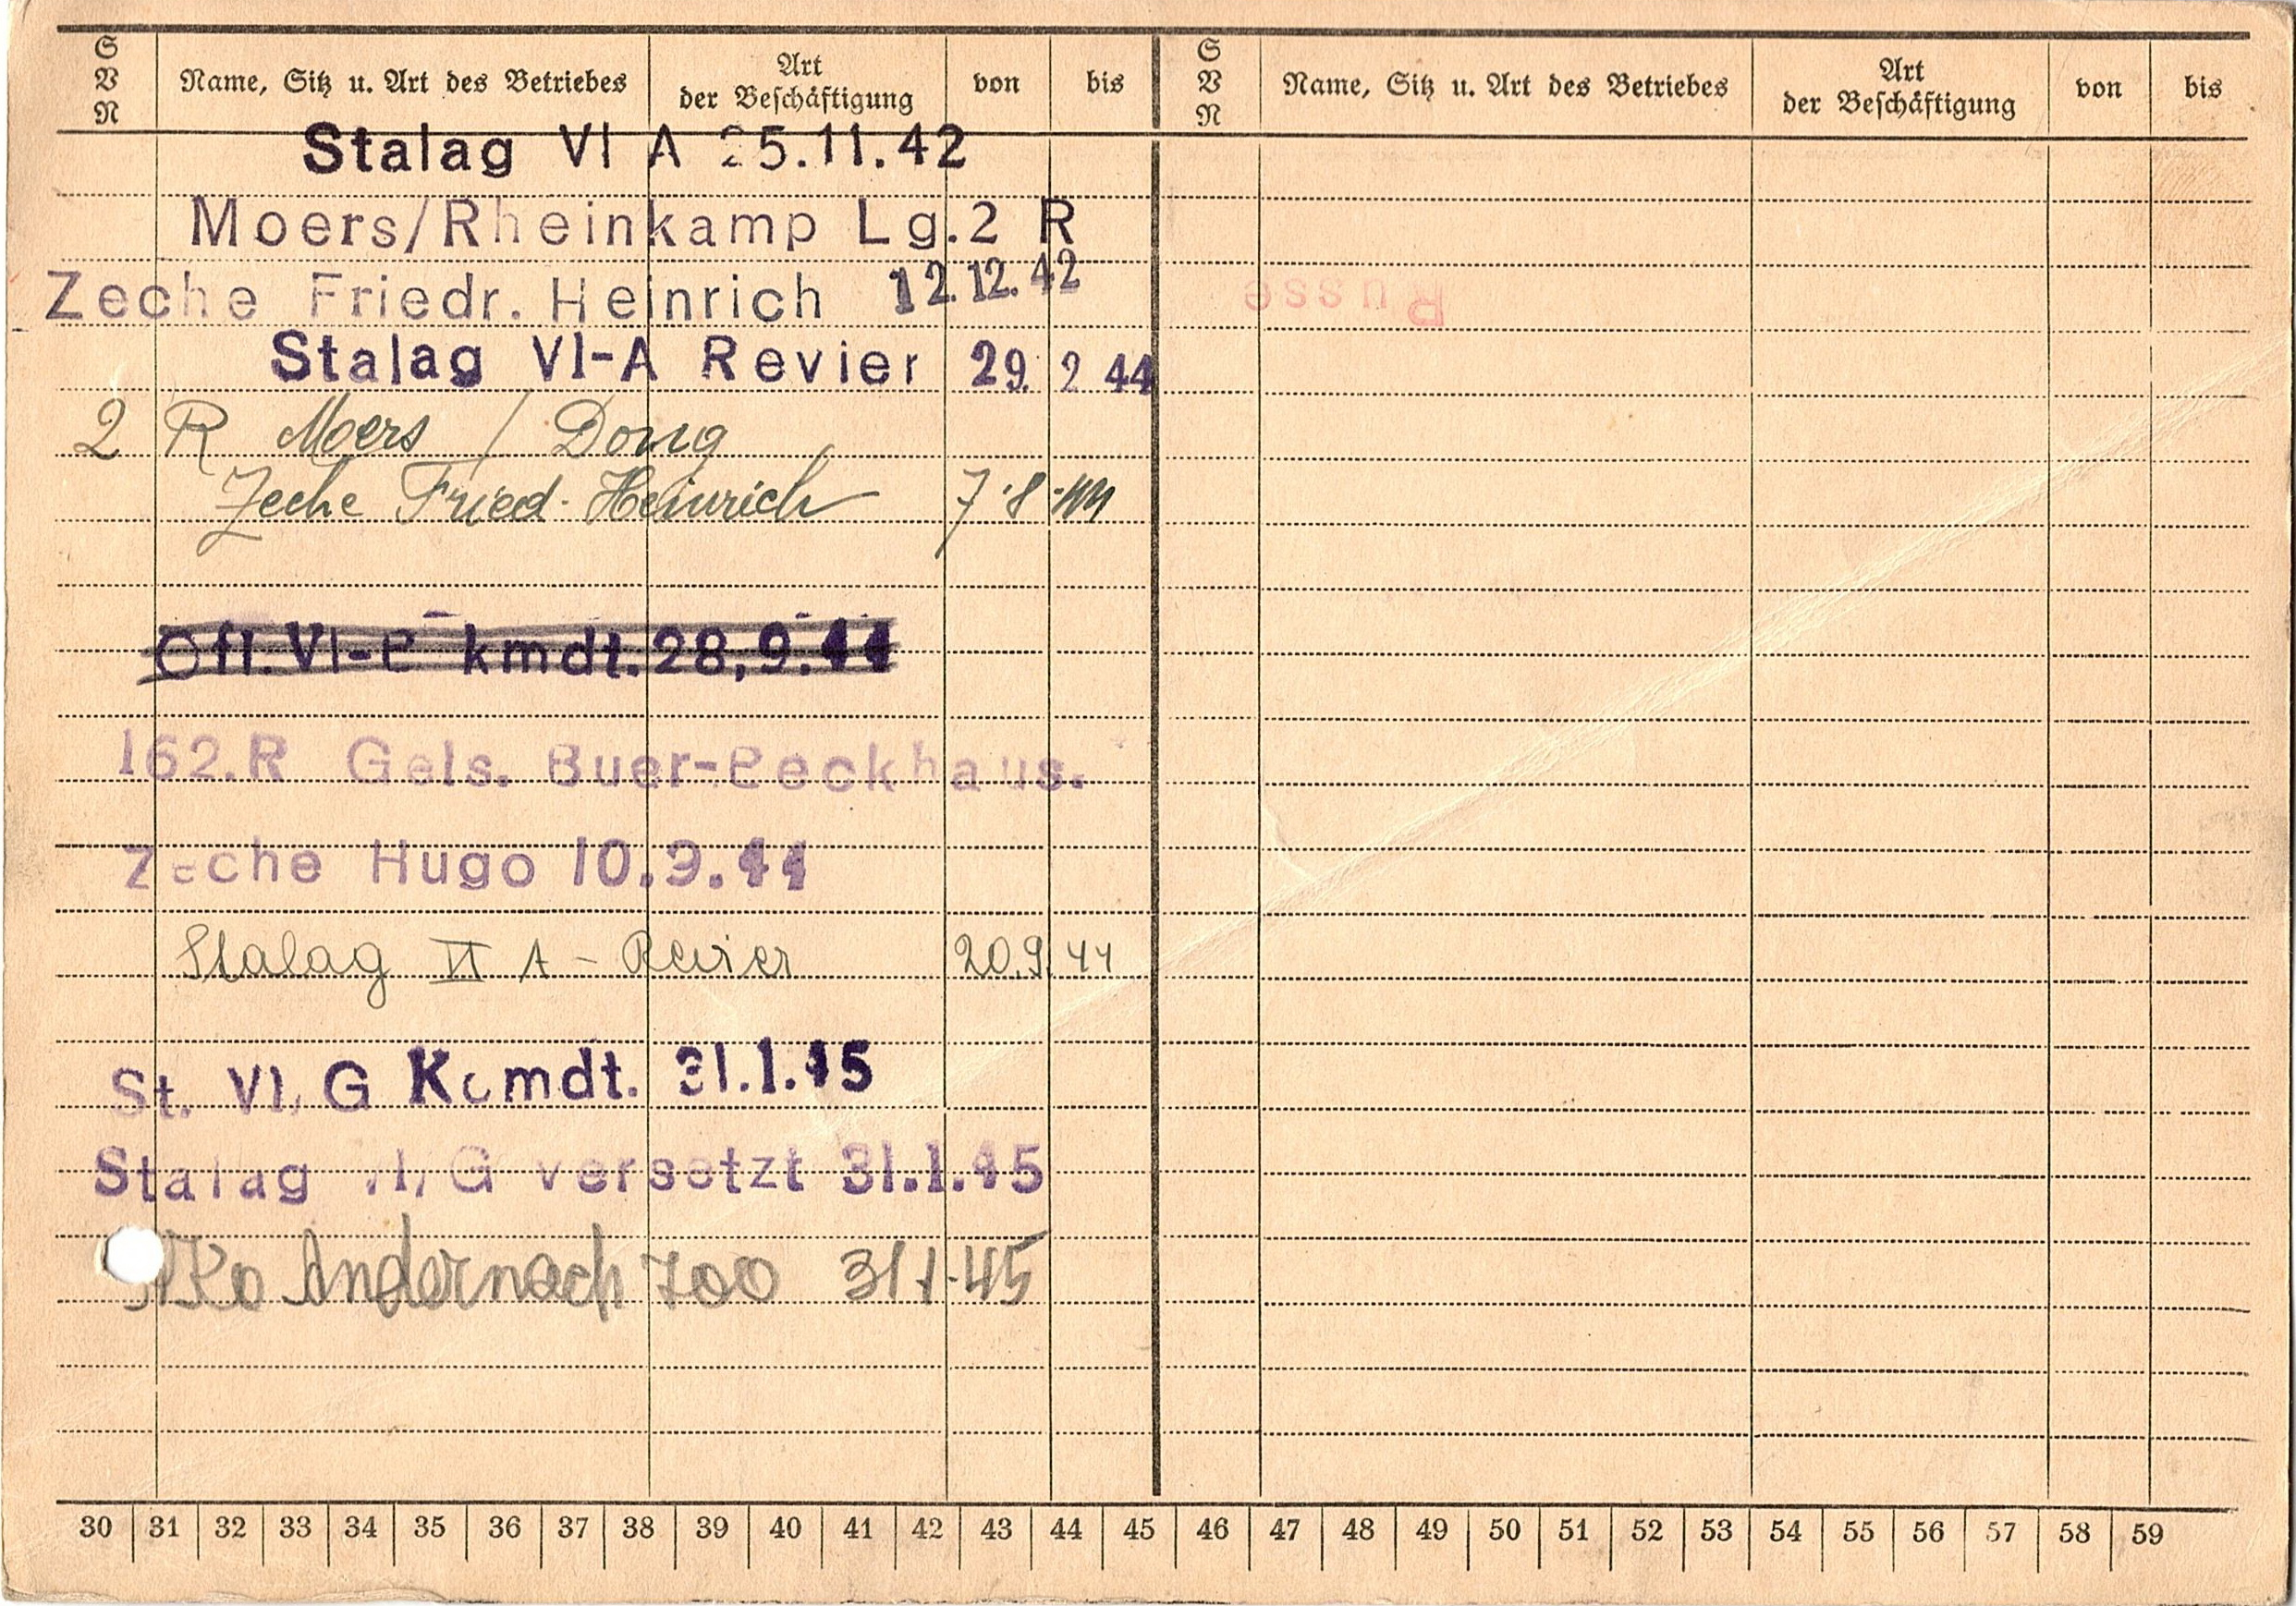 S V N Name, Sitz u. Art des Betriebes Art der Beschäftigung von bis S V N Name, Sitz u. Art des Betriebes Art der Beschäftigung von bis
Stalag VI A 25.11.42
Moers/Rheinkamp Lg.2 R
Zeche Friedr. Heinrich 12.12.42
Russe
Stalag VI-A Revier 29. 2 44
2 R Moers / Dong
Zeche Fried. Heinrich 7.8.44
Ofl. VI-e kmdt. 28,9.44
162.R Gels. Buer-Beckhaus.
Zeche Hugo 10.9.44
Stalag VI A - Revier 20.9.44
St. VI, G Komdt. 31.1.45
Stalag VI, G versetzt 31.1.45
Andernach 700 31 1.45
30 31 32 33 34 35 36 37 38 39 40 41 42 43 44 45 46 47 48 49 50 51 52 53 54 55 56 57 58 59